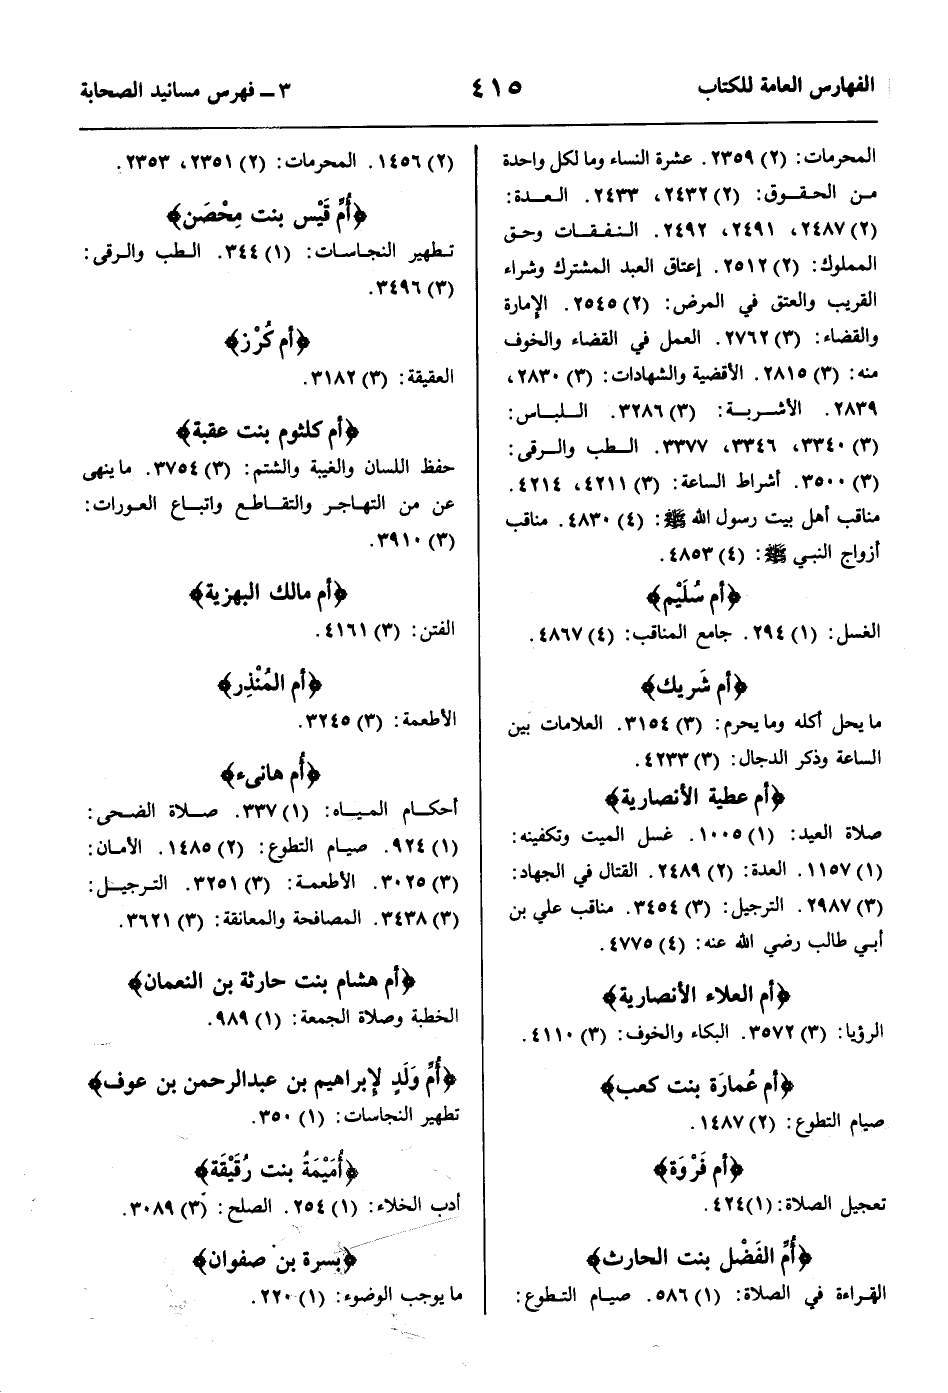 الفهارس العامة للكتاب
٤١٥
٣ ــ فهرس مسانيد الصحابة
المحرمات: (٢) ٢٣٥٩. عشرة النساء وما لكل واحدة
من الحقوق: (٢) ٢٤٣٢، ٢٤٣٣. العدة:
(٢) ٢٤٨٧، ٢٤٩١، ٢٤٩٢. النفقات وحق
المملوك: (٢) ٢٥١٢. إعتاق العبد المشترك وشراء
القريب والعتق في المرض: (٢) ٢٥٤٥. الإمارة
والقضاء: (٣) ٢٧٦٢. العمل في القضاء والخوف
منه: (٣) ٢٨١٥. الأقضية والشهادات: (٣) ٢٨٣٠،
٢٨٣٩. الأشربة: (٣) ٣٢٨٦. اللباس:
(٣) ٣٣٤٠، ٣٣٤٦، ٣٣٧٧. الطب والرقى:
(٣) ٣٥٠٠. أشراط الساعة: (٣) ٤٢١١، ٤٢١٤.
مناقب أهل بيت رسول الله ﷺ: (٤) ٤٨٣٠. مناقب
أزواج النبي ﷺ: (٤) ٤٨٥٣.
﴿أم سُلَيْم﴾
الغسل: (١) ٢٩٤. جامع المناقب: (٤) ٤٨٦٧.
﴿أم شَريك﴾
ما يحل أكله وما يحرم: (٣) ٣١٥٤. العلامات بين
الساعة وذكر الدجال: (٣) ٤٢٣٣.
﴿أم عطية الأنصارية﴾
صلاة العيد: (١) ١٠٠٥. غسل الميت وتكفينه:
(١) ١١٥٧. العدة: (٢) ٢٤٨٩. القتال في الجهاد:
(٣) ٢٩٨٧. الترجيل: (٣) ٣٤٥٤. مناقب علي بن
أبي طالب رضي الله عنه: (٤) ٤٧٧٥.
﴿أم العلاء الأنصارية﴾
الرؤيا: (٣) ٣٥٧٢. البكاء والخوف: (٣) ٤١١٠.
﴿أم عُمارَة بنت كعب﴾
صيام التطوع: (٢) ١٤٨٧.
﴿أم فَرْوَة﴾
تعجيل الصلاة: (١) ٤٢٤.
﴿أُمِّ الفَضْل بنت الحارث﴾
القراءة في الصلاة: (١) ٥٨٦. صيام التطوع:
(٢) ١٤٥٦. المحرمات: (٢) ٢٣٥١، ٢٣٥٣.
﴿أُمِّ قَيْس بنت مِحْصَن﴾
تطهير النجاسات: (١) ٣٤٤. الطب والرقى:
(٣) ٣٤٩٦.
﴿أم كُرْز﴾
العقيقة: (٣) ٣١٨٢.
﴿أم كلثوم بنت عقبة﴾
حفظ اللسان والغيبة والشتم: (٣) ٣٧٥٤. ما ينهى
عن من التهاجر والتقاطع واتباع العورات:
(٣) ٣٩١٠.
﴿أم مالك البهزية﴾
الفتن: (٣) ٤١٦١.
﴿أم المُنْذِر﴾
الأطعمة: (٣) ٣٢٤٥.
﴿أُم هانىء﴾
أحكام المياه: (١) ٣٣٧. صلاة الضحى:
(١) ٩٢٤. صيام التطوع: (٢) ١٤٨٥. الأمان:
(٣) ٣٠٢٥. الأطعمة: (٣) ٣٢٥١. الترجيل:
(٣) ٣٤٣٨. المصافحة والمعانقة: (٣) ٣٦٢١.
﴿أم هشام بنت حارثة بن النعمان﴾
الخطبة وصلاة الجمعة: (١) ٩٨٩.
﴿أُمِّ وَلَدٍ لإبراهيم بن عبدالرحمن بن عوف﴾
تطهير النجاسات: (١) ٣٥٠.
﴿أُمَيْمَةُ بنت رُقَيْقَة﴾
أدب الخلاء: (١) ٢٥٤. الصلح: (٣) ٣٠٨٩.
﴿بسرة بن صفوان﴾
ما يوجب الوضوء: (١) ٢٢٠.